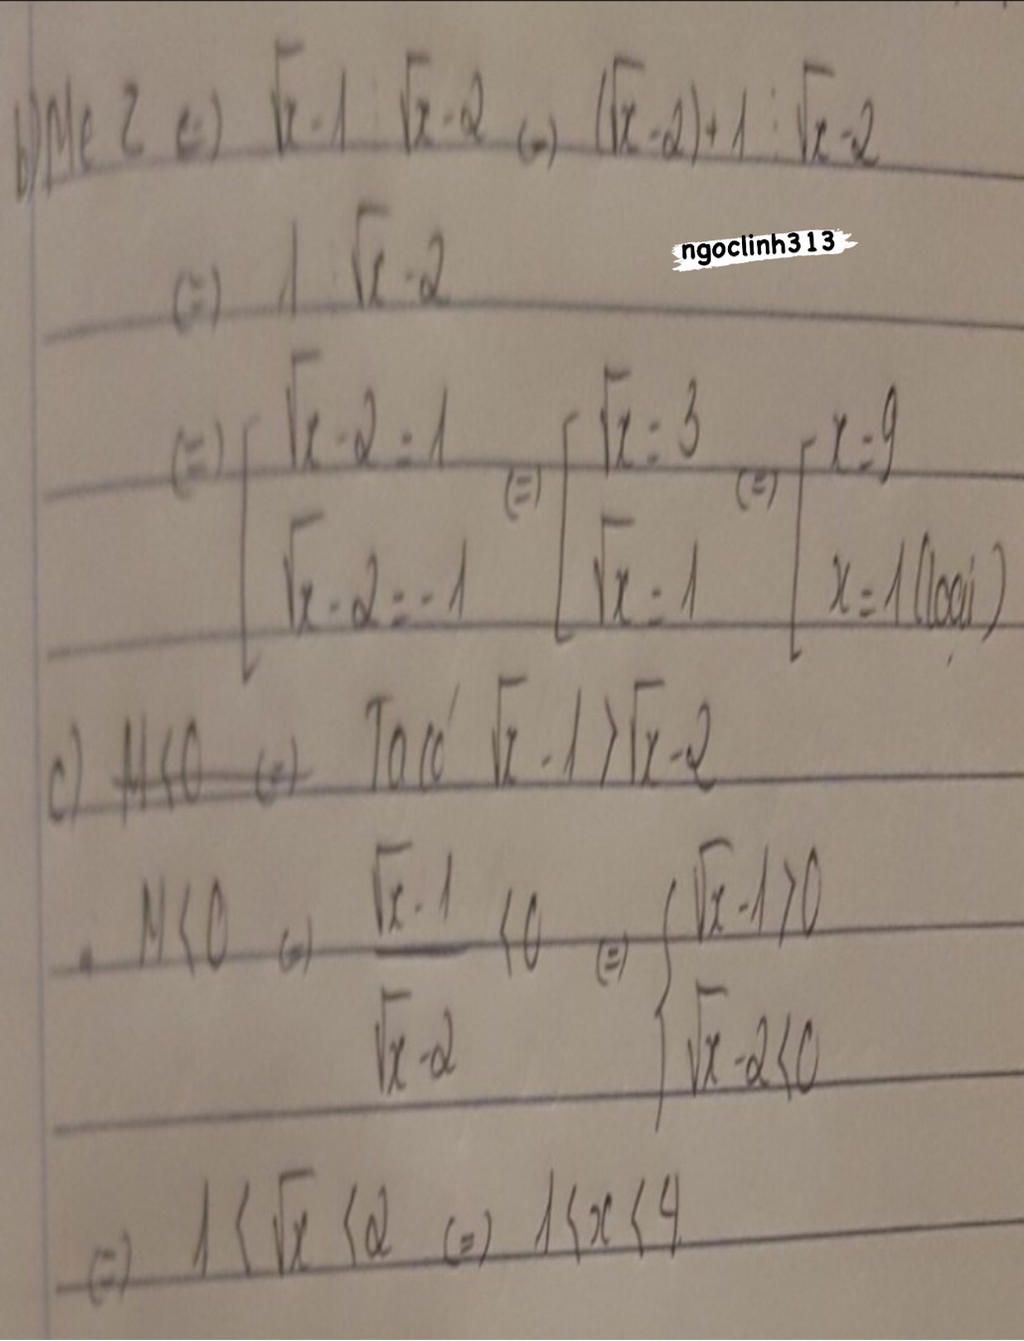 b) M∈Z (=) √x-1 ⋮ √x-2 (=) (√x-2)+1 ⋮ √x-2
(=) 1 ⋮ √x-2
ngoclinh313
(=) [ √x-2=1 (=) [ √x=3 (=) [ x=9
√x-2=-1 √x=1 x=1 (loại)
c) M<0 (=) Ta có √x-1 > √x-2
. M<0 (=) √x-1 / √x-2 <0 (=) { √x-1>0
√x-2<0
(=) 1<√x<2 (=) 1<x<4